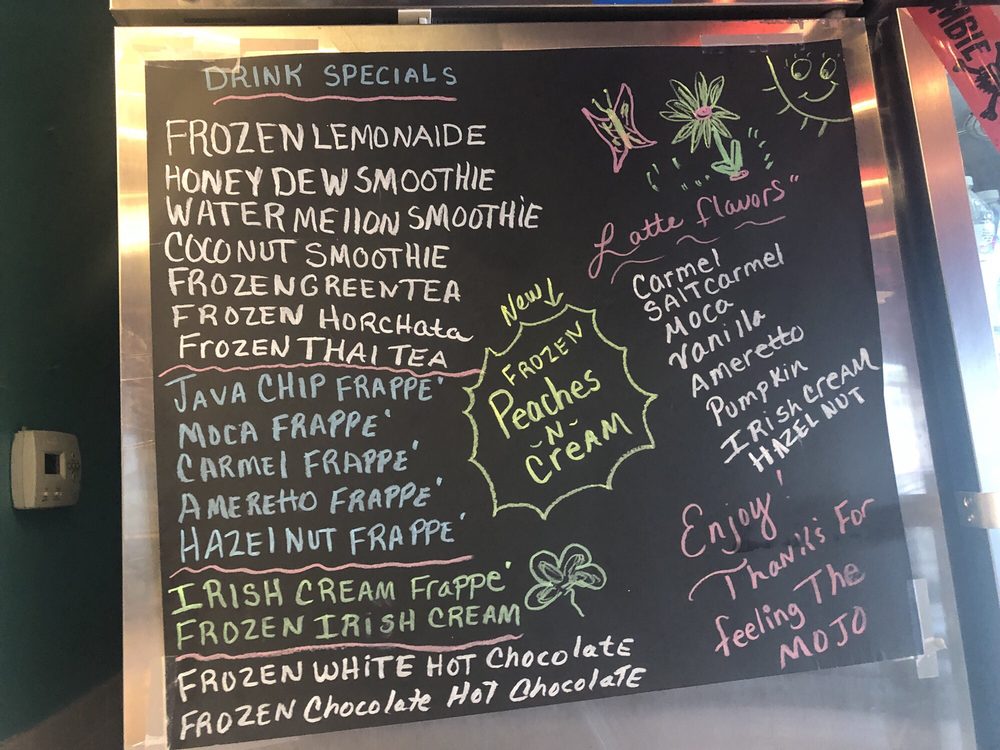 DRINK SPECIALS
FROZEN LEMONAIDE
HONEY DEW SMOOTHIE
WATER MEllON SMOOTHiE
COCONUT SMOOTHIE
FROZEN GREEN TEA
FROZEN HORCHata
FrOZEN THAI TEA
JAVA CHIP FRAPPE'
MOCA FRAPPE'
CARMEl FRAPPE'
AMERETTO FRAPPE'
HAZEl NUT FRAPPE'
IRISH CREAM Frappe'
FROZEN IRISH CREAM
FROZEN WHITE HOT Chocolate
FROZEN Chocolate HOT ChocolaTE
New
FROZEN
Peaches
-N-
CreAM
Latte flavors"
Carmel
SAltCarmel
MOCA
Vanilla
Ameretto
Pumpkin
IrisH CreAM
HAZEL NUT
Enjoy!
Thanks For
feeling The
MOJO